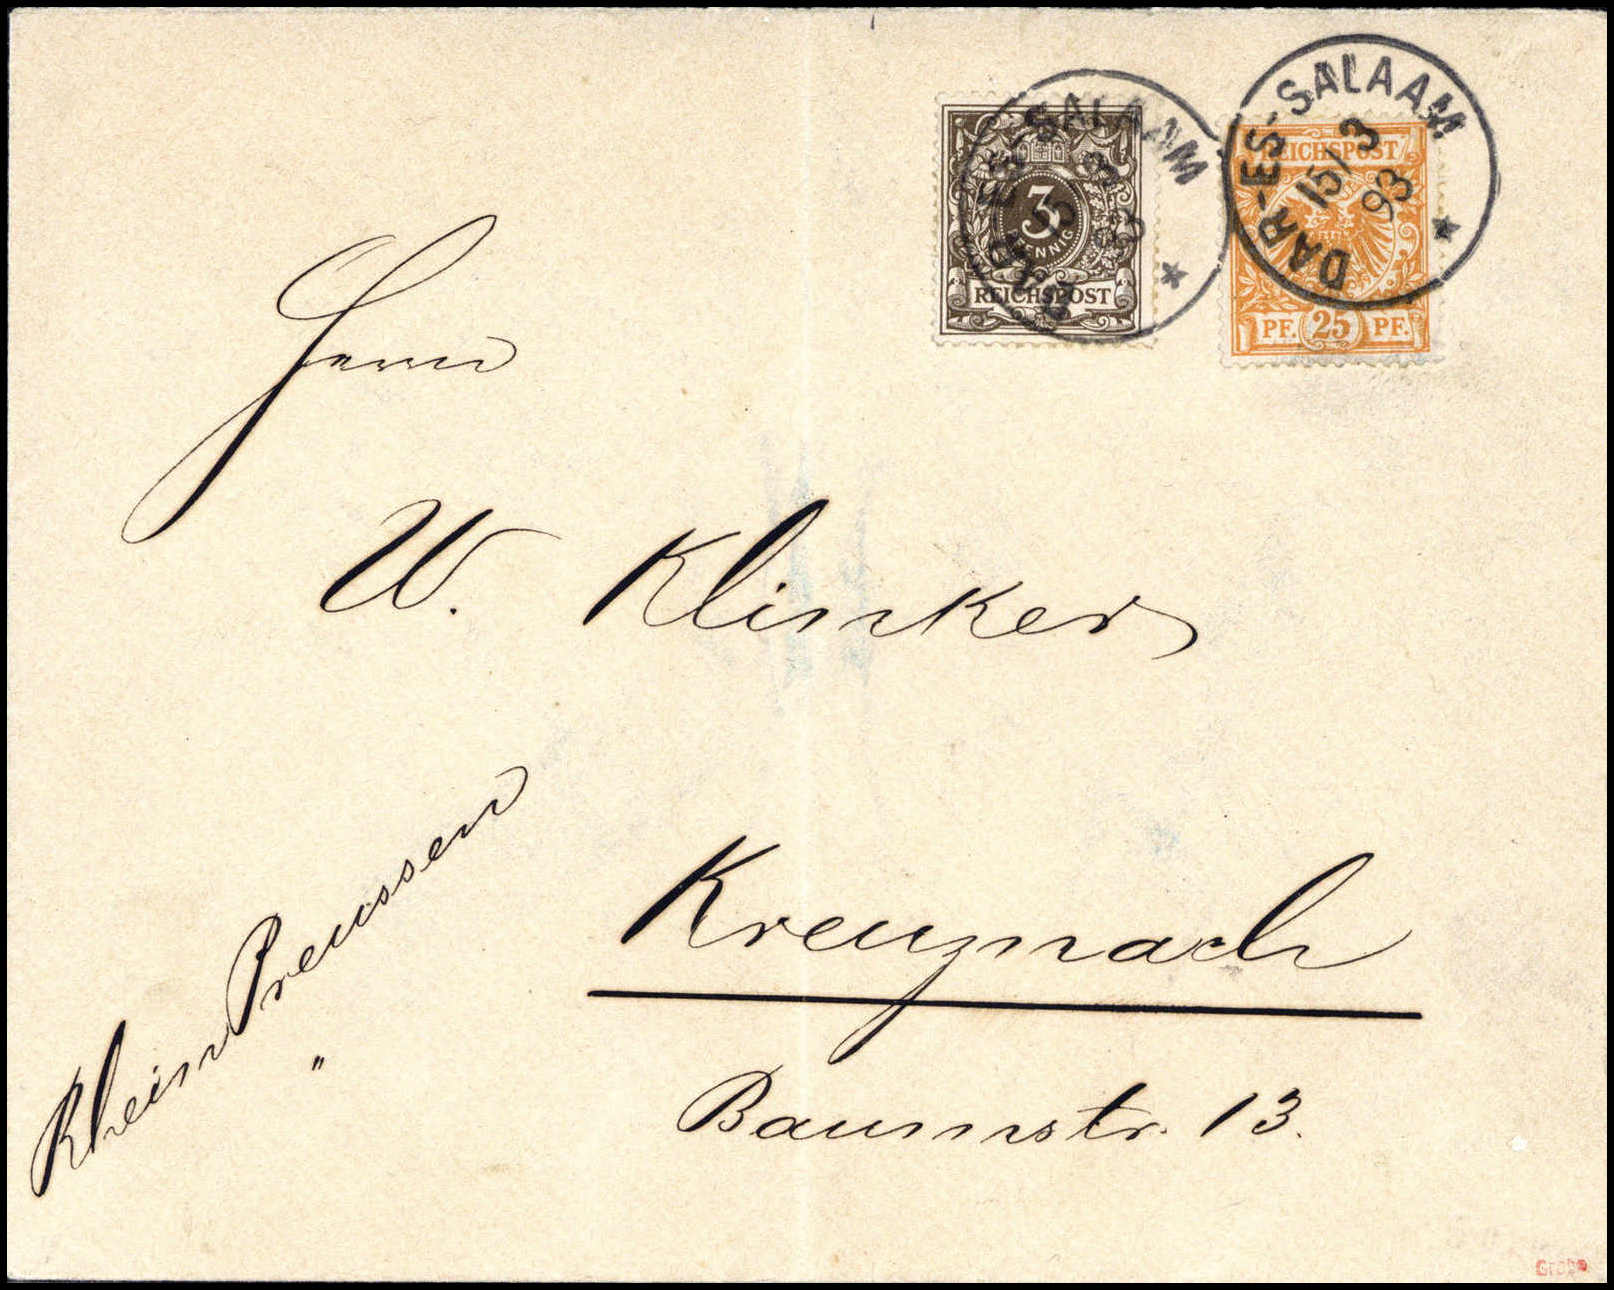 DAR-ES-SALAAM
15/3
93
3
PFENNIG
REICHSPOST
DAR-ES-SALAAM
15/3
93
REICHSPOST
PF. 25 PF.
Herrn
W. Klinker
Kreuznach
Baumstr. 13.
Rhein Preussen
"
Grobe